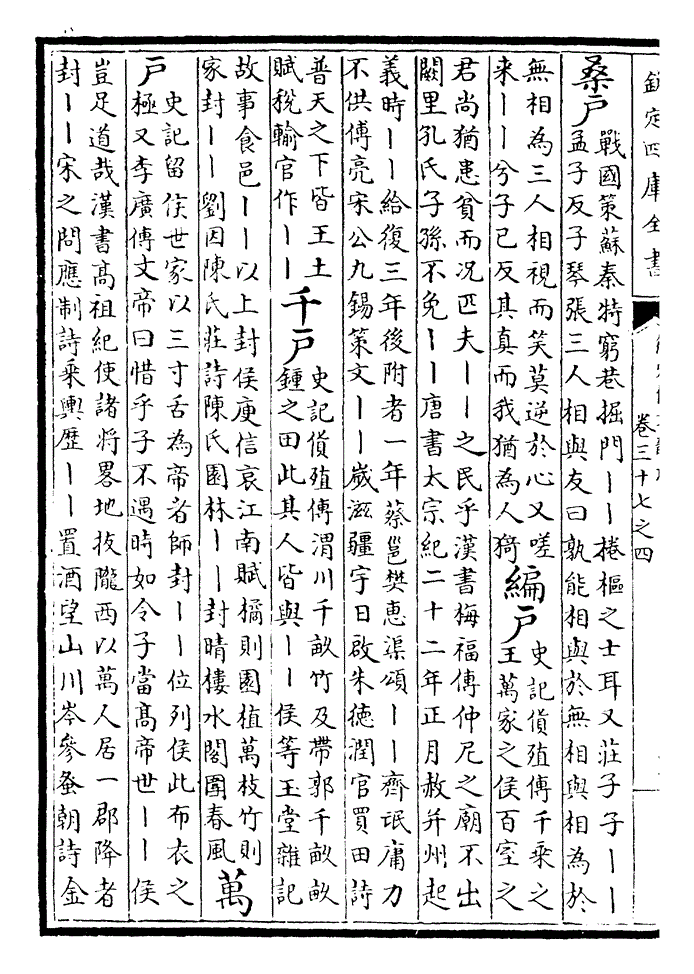 欽定四庫全書
卷三十七之四
桑戶
戰國策蘇秦特窮巷掘門丨丨捲樞之士耳又莊子子丨丨
孟子反子琴張三人相與友曰孰能相與於無相與相為於
無相為三人相視而笑莫逆於心又嗟
来丨丨兮子已反其真而我猶為人猗
編戶
史記貨殖傳千乗之
王萬家之侯百室之
君尚猶患貧而况匹夫丨丨之民乎漢書梅福傳仲尼之廟不出
闕里孔氏子孫不免丨丨唐書太宗紀二十二年正月赦并州起
義時丨丨給復三年後附者一年蔡邕樊惠渠頌丨丨齊氓庸力
不供傅亮宋公九錫策文丨丨嵗滋疆宇日啟朱徳潤官買田詩
普天之下皆王土
賦稅輸官作丨丨
千戶
史記貨殖傳渭川千畝竹及帶郭千畝畝
鍾之田此其人皆與丨丨侯等玉堂雜記
故事食邑丨丨以上封侯庾信哀江南賦橘則園植萬枝竹則
家封丨丨劉因陳氏莊詩陳氏園林丨丨封晴樓水閣圍春風
萬
戶
史記留侯世家以三寸舌為帝者師封丨丨位列侯此布衣之
極又李廣傳文帝曰惜乎子不遇時如令子當髙帝世丨丨侯
豈足道哉漢書髙祖紀使諸将畧地拔隴西以萬人居一郡降者
封丨丨宋之問應制詩乗輿歴丨丨置酒望山川岑參蚤朝詩金